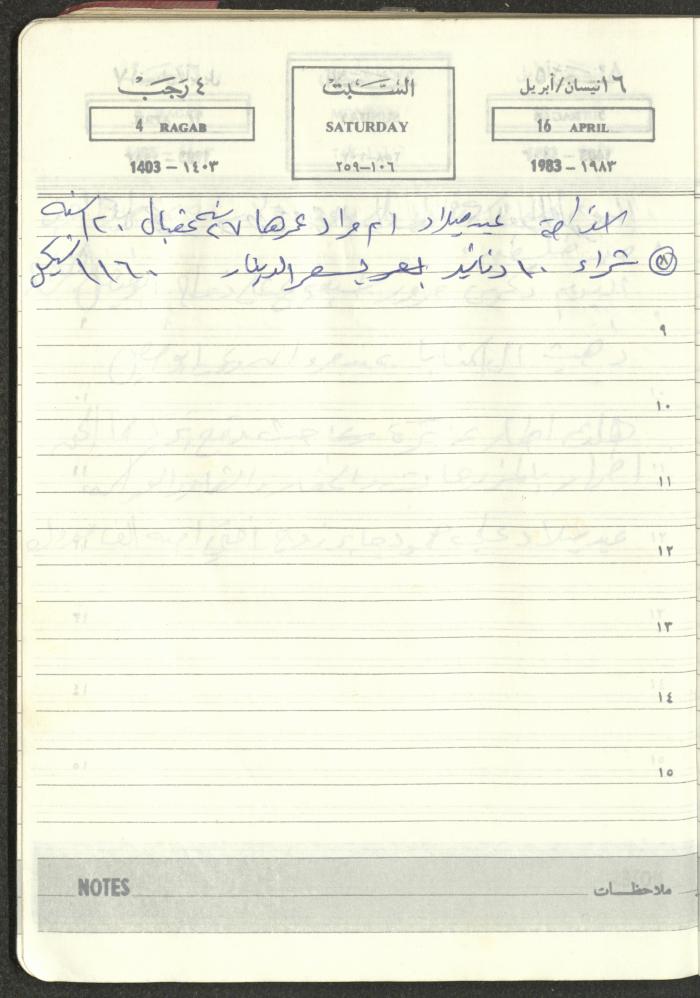 ١٦ نيسان/أبريل السَّبت ٤ رَجَب
16 APRIL SATURDAY 4 RAGAB
1983 – ١٩٨٣ ١٠٦–٢٥٩ 1403 – ١٤٠٣
استراحة عيد ميلاد ام مراد عمرها ٢٧ سنة عقبال ١٢٠ سنه
شراء ١٠ دنانير بسعر الدينار ١١٦٠ شيكل
٩
١٠
١١
١٢
١٣
١٤
١٥
ملاحظات NOTES